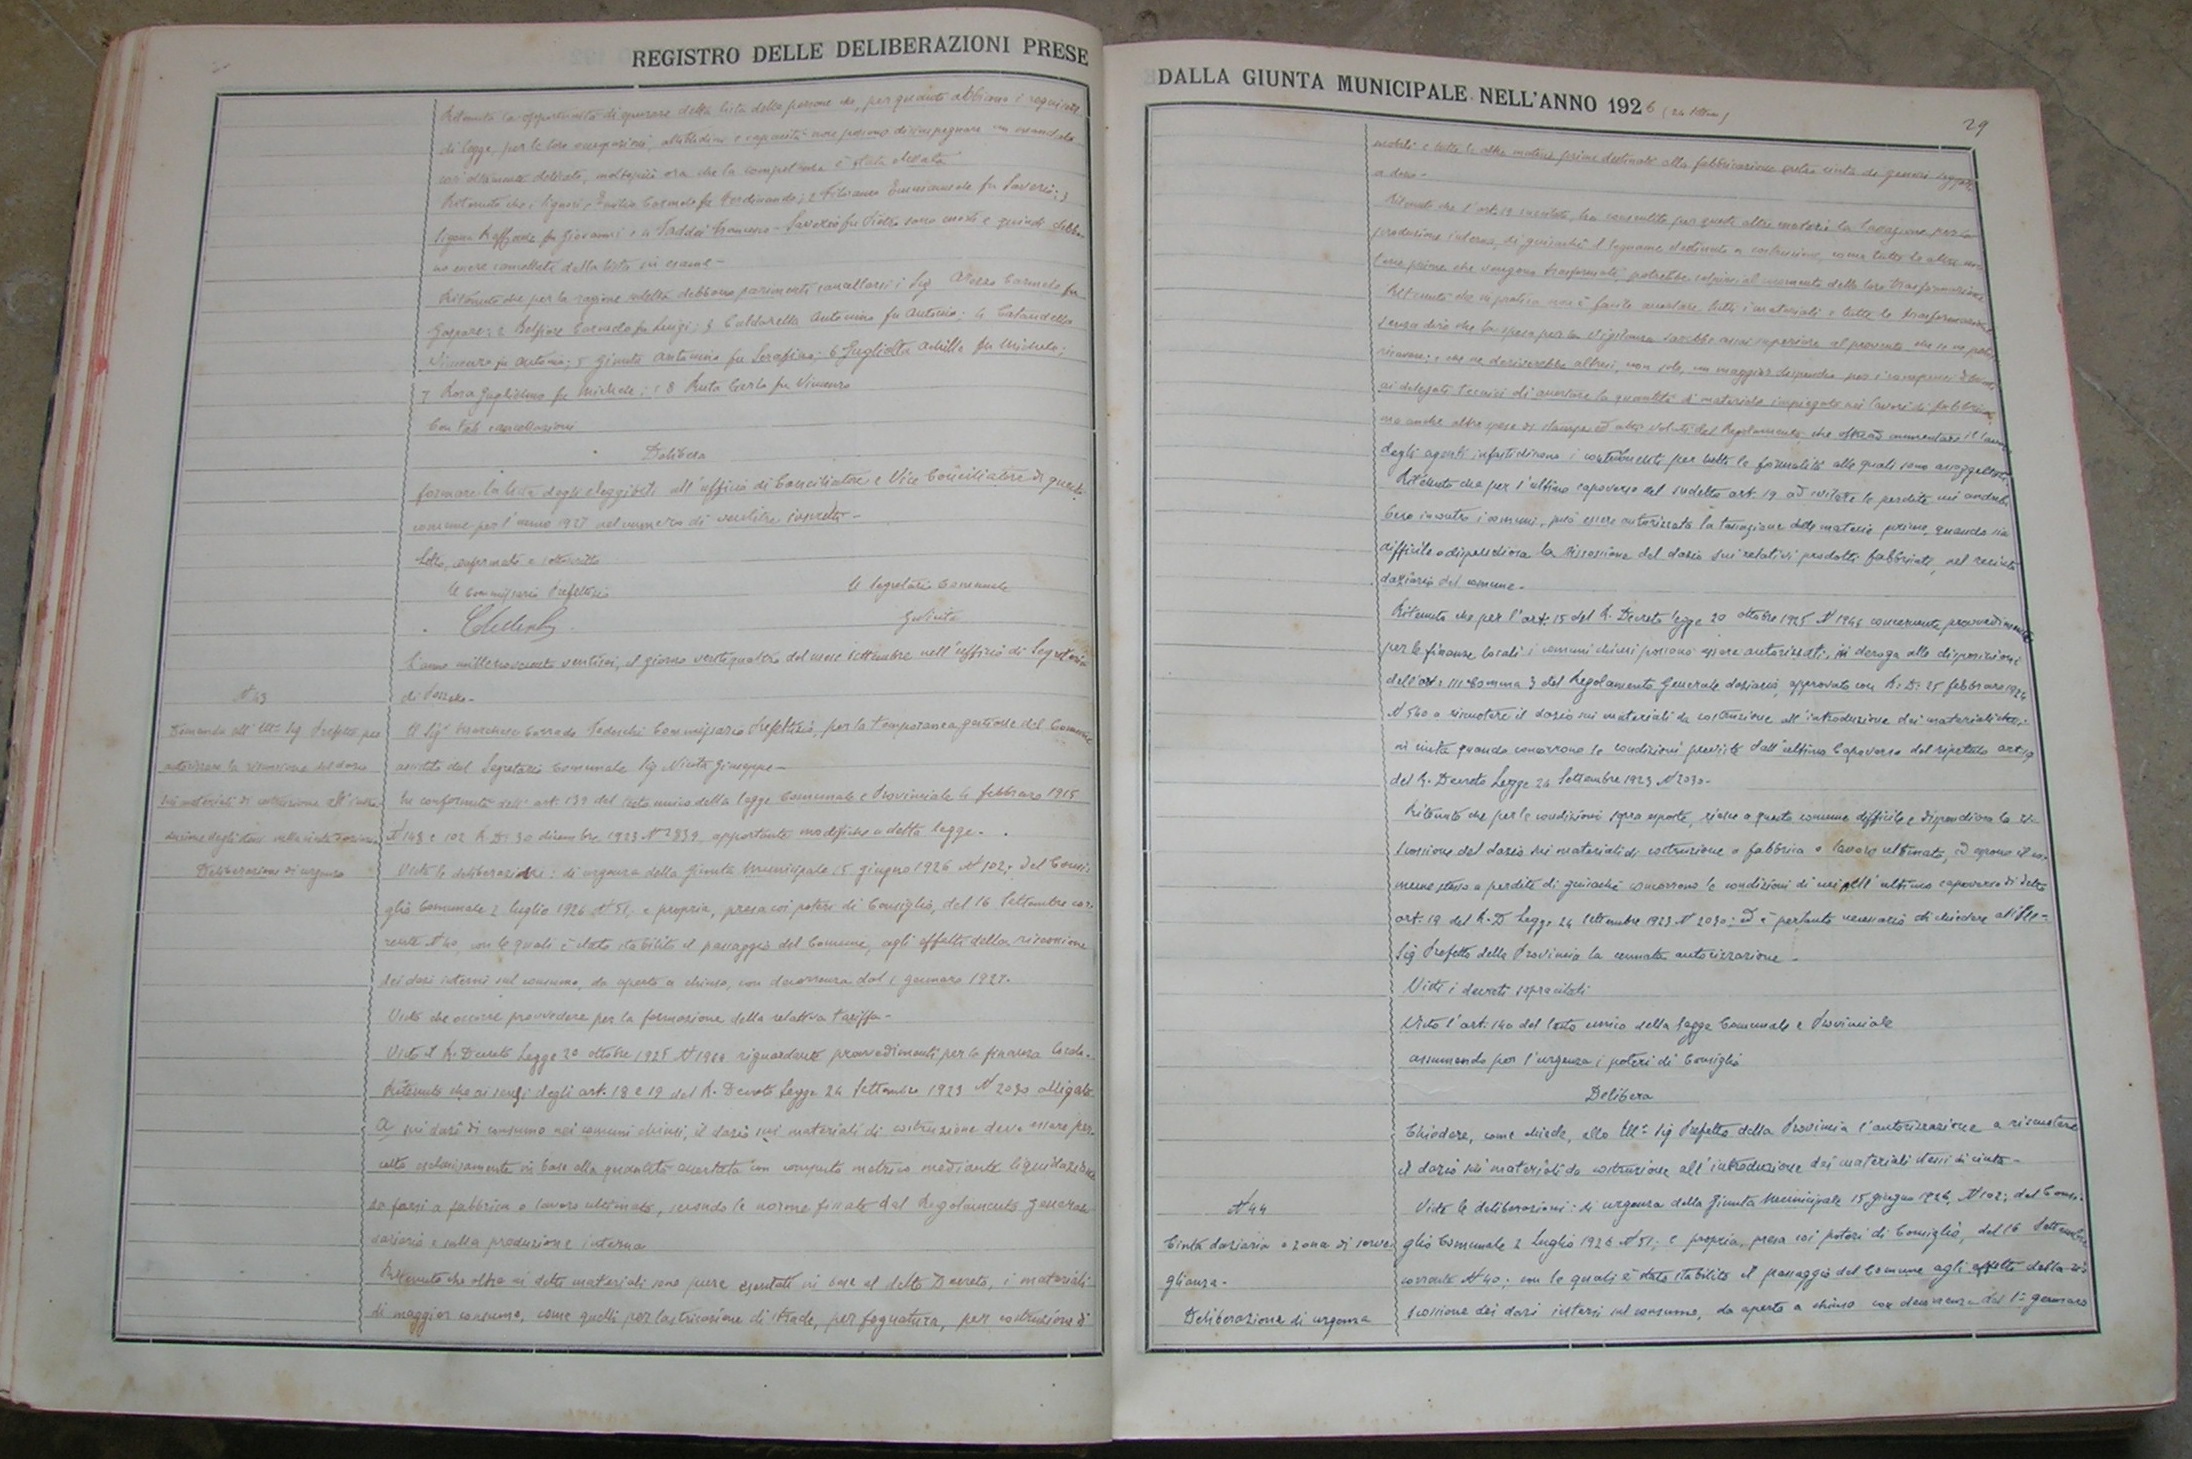 REGISTRO DELLE DELIBERAZIONI PRESE
Ritenuta la opportunità di epurare della lista delle persone che, per quanto abbiano i requisiti
di legge, per le loro occupazioni, abitudini e capacità non possono disimpegnare un mandato
così altamente delicato, moltopiù ora che la competenza è stata elevata
Ritenuto che i signori Carmelo fu Ferdinando; 2 Emmanuele fu Saverio; 3
Raffaele fu Giovanni e 4 Taddei Francesco-Saverio fu Pietro sono morti e quindi debbo
no essere cancellati dalla lista in esame-
Ritenuto che per la ragione debbono parimenti cancellarsi i Sig. Carmelo fu
Gaspare; 2 Belfiore Carmelo fu Luigi; 3 Caldarella Antonino fu Antonio; 4 Catandella
Vincenzo fu Antonio; 5 Giunta Antonino fu Serafino; 6 Guglielta Achille fu Michele;
7 Rosa Guglielmo fu Michele; e 8 Ruta Carlo fu Vincenzo
Con tali cancellazioni
Delibera
formare la lista degli eleggibili all'ufficio di Conciliatore e Vice Conciliatore di questo
comune per l'anno 1927 nel numero di
Letto, confermato e sottoscritto
Il Commissario Prefettizio
Il Segretario Comunale
G Nicita
L'anno millenovecento ventisei, il giorno ventiquattro del mese settembre nell'ufficio di Segreteria
di
N 43
Domanda all'Ill.mo Sig Prefetto per
autorizzare la riscossione del dazio
sui materiali di costruzione all'intro
duzione degli stessi nella cinta daziaria
Deliberazione di urgenza
Il Sig.r Marchese Corrado Tedeschi Commissario Prefettizio, per la temporanea gestione del Comune
assistito dal Segretario Comunale Sig Nicita Giuseppe-
In conformità dell'art. 139 del testo unico della legge Comunale e Provinciale 4 febbraro 1915
N 148 e 102 R. D. 30 dicembre 1923 N 2839 apportante modifiche a detta legge-
Viste le deliberazioni: di urgenza della Giunta Municipale 15 giugno 1926 N 102; del Consi-
glio Comunale 2 luglio 1926 N 51; e propria, presa coi poteri di Consiglio, del 16 Settembre cor-
rente N 40, con le quali è stato stabilito il passaggio del Comune, agli effetti della riscossione
dei dazi interni sul consumo, da aperto a chiuso, con decorrenza dal 1 gennaro 1927-
Visto che occorre provvedere per la formazione della relativa tariffa-
Visto il R. Decreto Legge 20 ottobre 1925 N 1944 riguardante provvedimenti per la finanza locale-
Ritenuto che ai sensi degli art. 18 e 19 del R. Decreto Legge 24 Settembre 1923 N 2030 allegato
A, sui dazi di consumo nei comuni chiusi, il dazio sui materiali di costruzione deve essere per-
cetto esclusivamente in base alla quantità accertata con computo metrico mediante liquidazione
da farsi a fabbrica o lavoro ultimato, secondo le norme fissate dal Regolamento generale
daziario e sulla produzione interna
Ritenuto che oltre ai detti materiali sono pure esentati in base al detto Decreto, i materiali
di maggior consumo, come quelli per lastricazione di strade, per fognatura, per costruzione di
DALLA GIUNTA MUNICIPALE NELL'ANNO 1926 (24 Settem)
29
mobili e tutte le altre materie prime destinate alla fabbricazione entro cinta di generi soggetti
a dazio-
Ritenuto che l'art. 19 succitato, ha consentito per queste altre materie la tassazione per la
produzione interna, di guisachè il legname destinato a costruzione, come tutte le altre ma
terie prime che vengono trasformate, potrebbe colpirsi al momento della loro trasformazione
Ritenuto che in pratica non è facile accertare tutti i materiali e tutte le trasformazioni
senza dire che la spesa per la vigilanza sarebbe assai superiore al provento che se ne potrebbe
ricavare; e che ne deriverebbe altresì, non solo, un maggior dispendio per i compensi
ai delegati tecnici di accertare la quantità di materiale impiegato nei lavori di fabbrica
ma anche altre spese di stampe ed altro voluti dal Regolamento che oltre ad aumentare il lavoro
degli agenti infastidirono i contribuenti per tutte le formalità alle quali sono assoggettati.
Ritenuto che per l'ultimo capoverso del sudetto art. 19 ad evitare le perdite cui andreb
bero incontro i comuni, può essere autorizzata la tassazione delle materie prime, quando sia
difficile o dispendiosa la riscossione del dazio sui relativi prodotti fabbricati, nel recinto
daziario del comune-
Ritenuto che per l'art. 15 del R. Decreto legge 20 ottobre 1925 N 1944 concernente provvedimenti
per le finanze locali i comuni chiusi possono essere autorizzati, in deroga alle disposizioni
dell'art. 111 Comma 3 del Regolamento Generale daziario, approvato con R. D. 25 febbraro 1924
N 540 a riscuotere il dazio sui materiali da costruzione all'introduzione dei materiali stessi
in cinta quando concorrono le condizioni previste dall'ultimo Capoverso del ripetuto art. 19
del R. Decreto Legge 24 Settembre 1923 N 2030-
Ritenuto che per le condizioni sopra esposte, riesce a questo comune difficile e dispendiosa la ri-
scossione del dazio sui materiali di costruzione a fabbrica o lavoro ultimato, ed espone il co-
mune stesso a perdite di guisachè concorrono le condizioni di cui all'ultimo capoverso di detto
art. 19 del R. D Legge 24 Settembre 1923 N 2030; ed è pertanto necessario di chiedere all'Ill.-
Sig Prefetto della Provincia la cennata autorizzazione-
Visti i decreti sopracitati
Visto l'art. 140 del testo unico della legge Comunale e Provinciale
assumendo per l'urgenza i poteri di Consiglio
Delibera
Chiedere, come chiede, allo Ill.mo Sig Prefetto della Provincia l'autorizzazione a riscuotere
il dazio sui materiali da costruzione all'introduzione dei materiali stessi di cinta-
N 44
Cinta daziaria e zona di sorve-
glianza-
Deliberazione di urgenza
Viste le deliberazioni: di urgenza della Giunta Municipale 15 giugno 1926, N 102; del Consi-
glio Comunale 2 Luglio 1926 N 51; e propria, presa coi poteri di Consiglio, del 16 Settembre
corrente N 40; con le quali è stato stabilito il passaggio del Comune agli effetti della ri-
scossione dei dazi interni sul consumo, da aperto a chiuso con decorrenza dal 1° gennaro